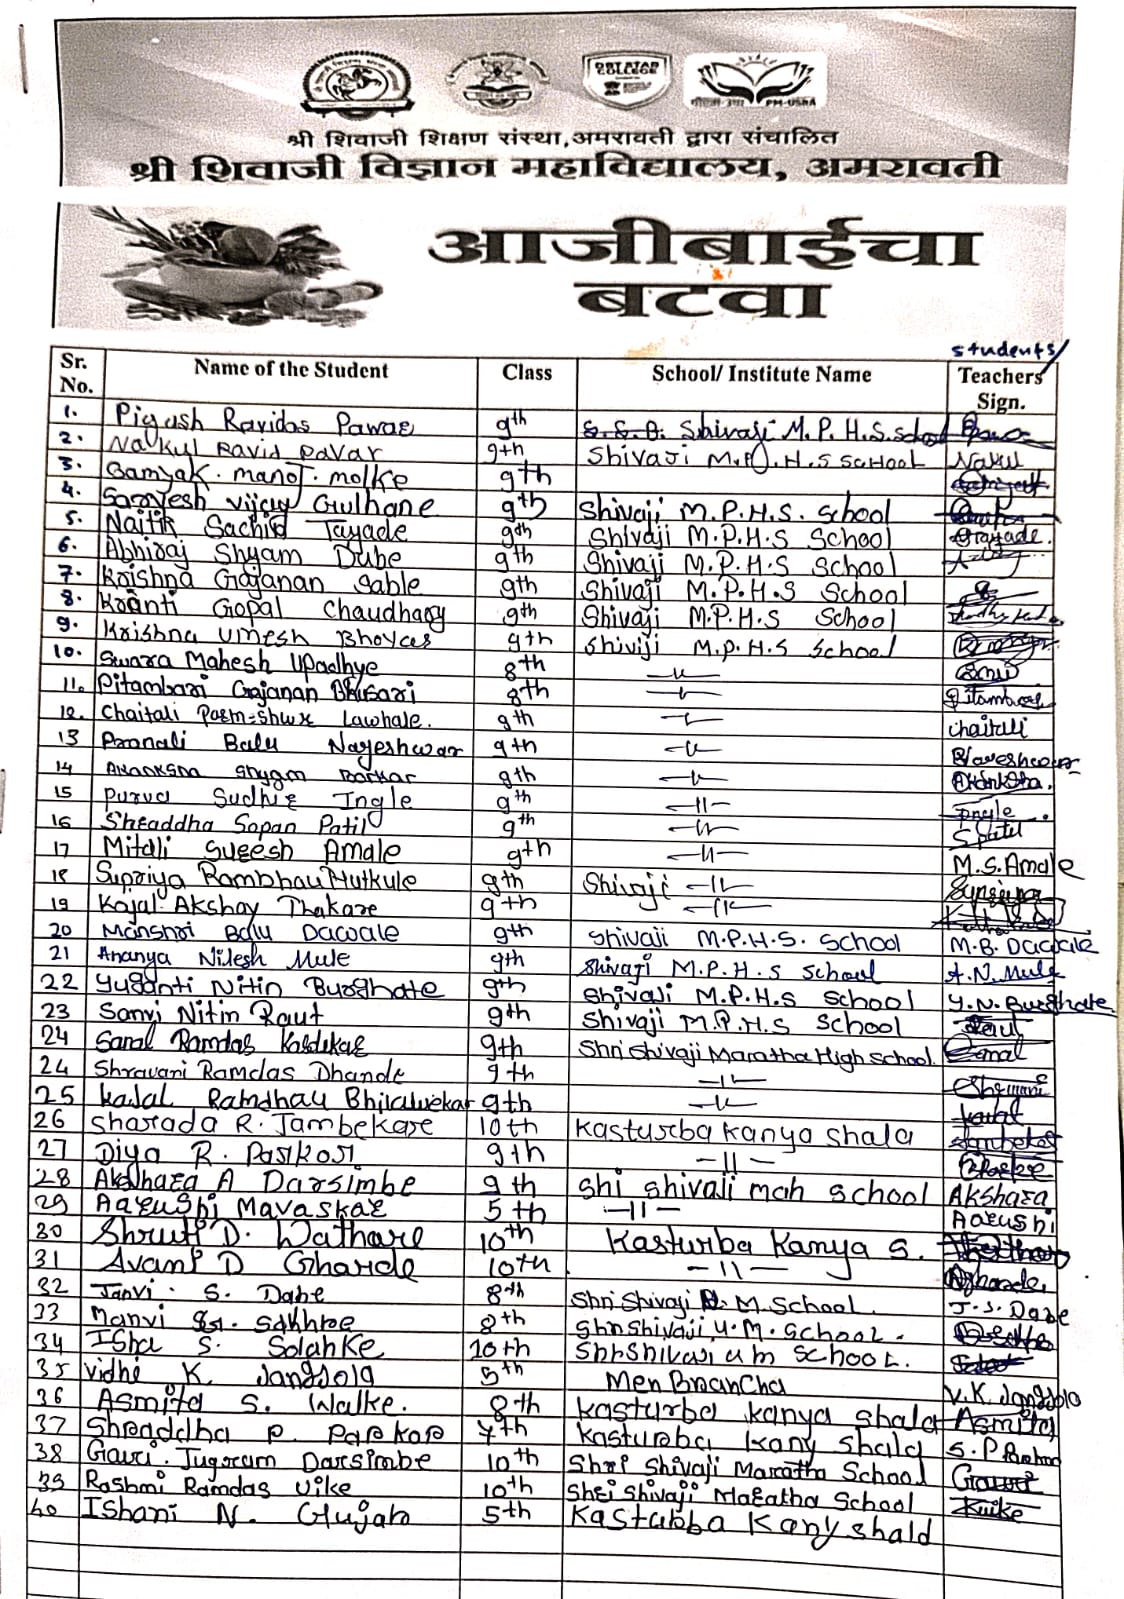 ORI ATAB
COLLEGE
PM-USHA
श्री शिवाजी शिक्षण संस्था,अमरावती द्वारा संचालित
श्री शिवाजी विज्ञान महाविद्यालय, अमरावती
आजीबाईचा
बटवा
students/
Sr. No. Name of the Student Class School/ Institute Name Teachers Sign.
1. Piyush Ravidas Pawar 9th S.S.D. Shivaji M.P.H.S. School
2. Nalkul Ravid Pavar 9th Shivaji M.P.H.S SCHOOL Nakul
3. Samyak. manoj. molke 9th
4. Sarvesh Vijay Gulhane 9th Shivaji M.P.H.S. School
5. Naitik Sachid Tayade 9th Shivaji M.P.H.S School Grayade.
6. Abhiraj Shyam Dube 9th Shivaji M.P.H.S School
7. Krishna Gajanan Sable 9th Shivaji M.P.H.S School
8. Kranti Gopal Chaudhary 9th Shivaji M.P.H.S School
9. Krishna Umesh Bhoyar 9th Shiviji M.P.H.S School
10. Swara Mahesh Upadhye 8th -〃-
11. Pitambari Gajanan Bhusari 8th -〃- Pitambari
12. Chaitali Lawhale. 9th -〃- chaitali
13 Pranali Balu Nageshwar 9th -〃-
14 Akanksha Shyam Borkar 9th -〃- Akanksha.
15 Purva Sudhir Ingle 9th -11- Ingle.
16 Shraddha Sopan Patil 9th -〃- S Patil
17 Mitali Suresh Amale 9th -11- M.S.Amale
18 Supriya Rambhau Hutkule 9th Shivaji -〃- Supriya
19 Kajal Akshay Thakare 9th -〃-
20 Manshri Balu Dawale 9th Shivaji M.P.H.S. School M.B. Dawale
21 Ananya Nilesh Mule 9th Shivaji M.P.H.S School A.N. Mule
22 Yuganti Nitin Burghate 9th Shivaji M.P.H.S School Y.N. Burghate
23 Sanvi Nitin Raut 9th Shivaji M.P.H.S School Raut
24 Sanal Ramdas Kardikar 9th Shri Shivaji Maratha High School. Sanal
24 Shravani Ramdas Dhande 9th -〃- Shravani
25 Kajal Ramdhau Bhilawekar 9th -〃- Kajal
26 Sharada R. Jambekare 10th Kasturba Kanya Shala
27 Diya R. Paskosi 9th -11-
28 Akshara A Darsimbe 9th Shi shivali mah School Akshara
29 Aarushi Mavaskar 5th -11- Aarushi
30 Shruti D. Wathare 10th Kasturba Kanya S.
31 Avani D Gharde 10th. -11-
32 Janvi. S. Dabe 8th Shri Shivaji M. School. J.S. Dabe
33 Manvi Sakhre 8th Shri Shivaji U.M. School.
34 Isha S. Solanke 10th Shri Shivasi U m School.
35 Vidhi K. Jangjola 5th Men Brancha V.K. Jangjolo
36 Asmita S. Walke. 8th Kasturba kanya shala Asmita
37 Shraddha P. Parkar 7th Kasturba kany shala S.P
38 Gauri. Jugoram Darsimbe 10th Shri Shivaji Maratha School Gauri
39 Rashmi Ramdas Uike 10th Shri Shivaji Maratha School Ruike
40 Ishani N. Glujar 5th Kastubba Kany shald